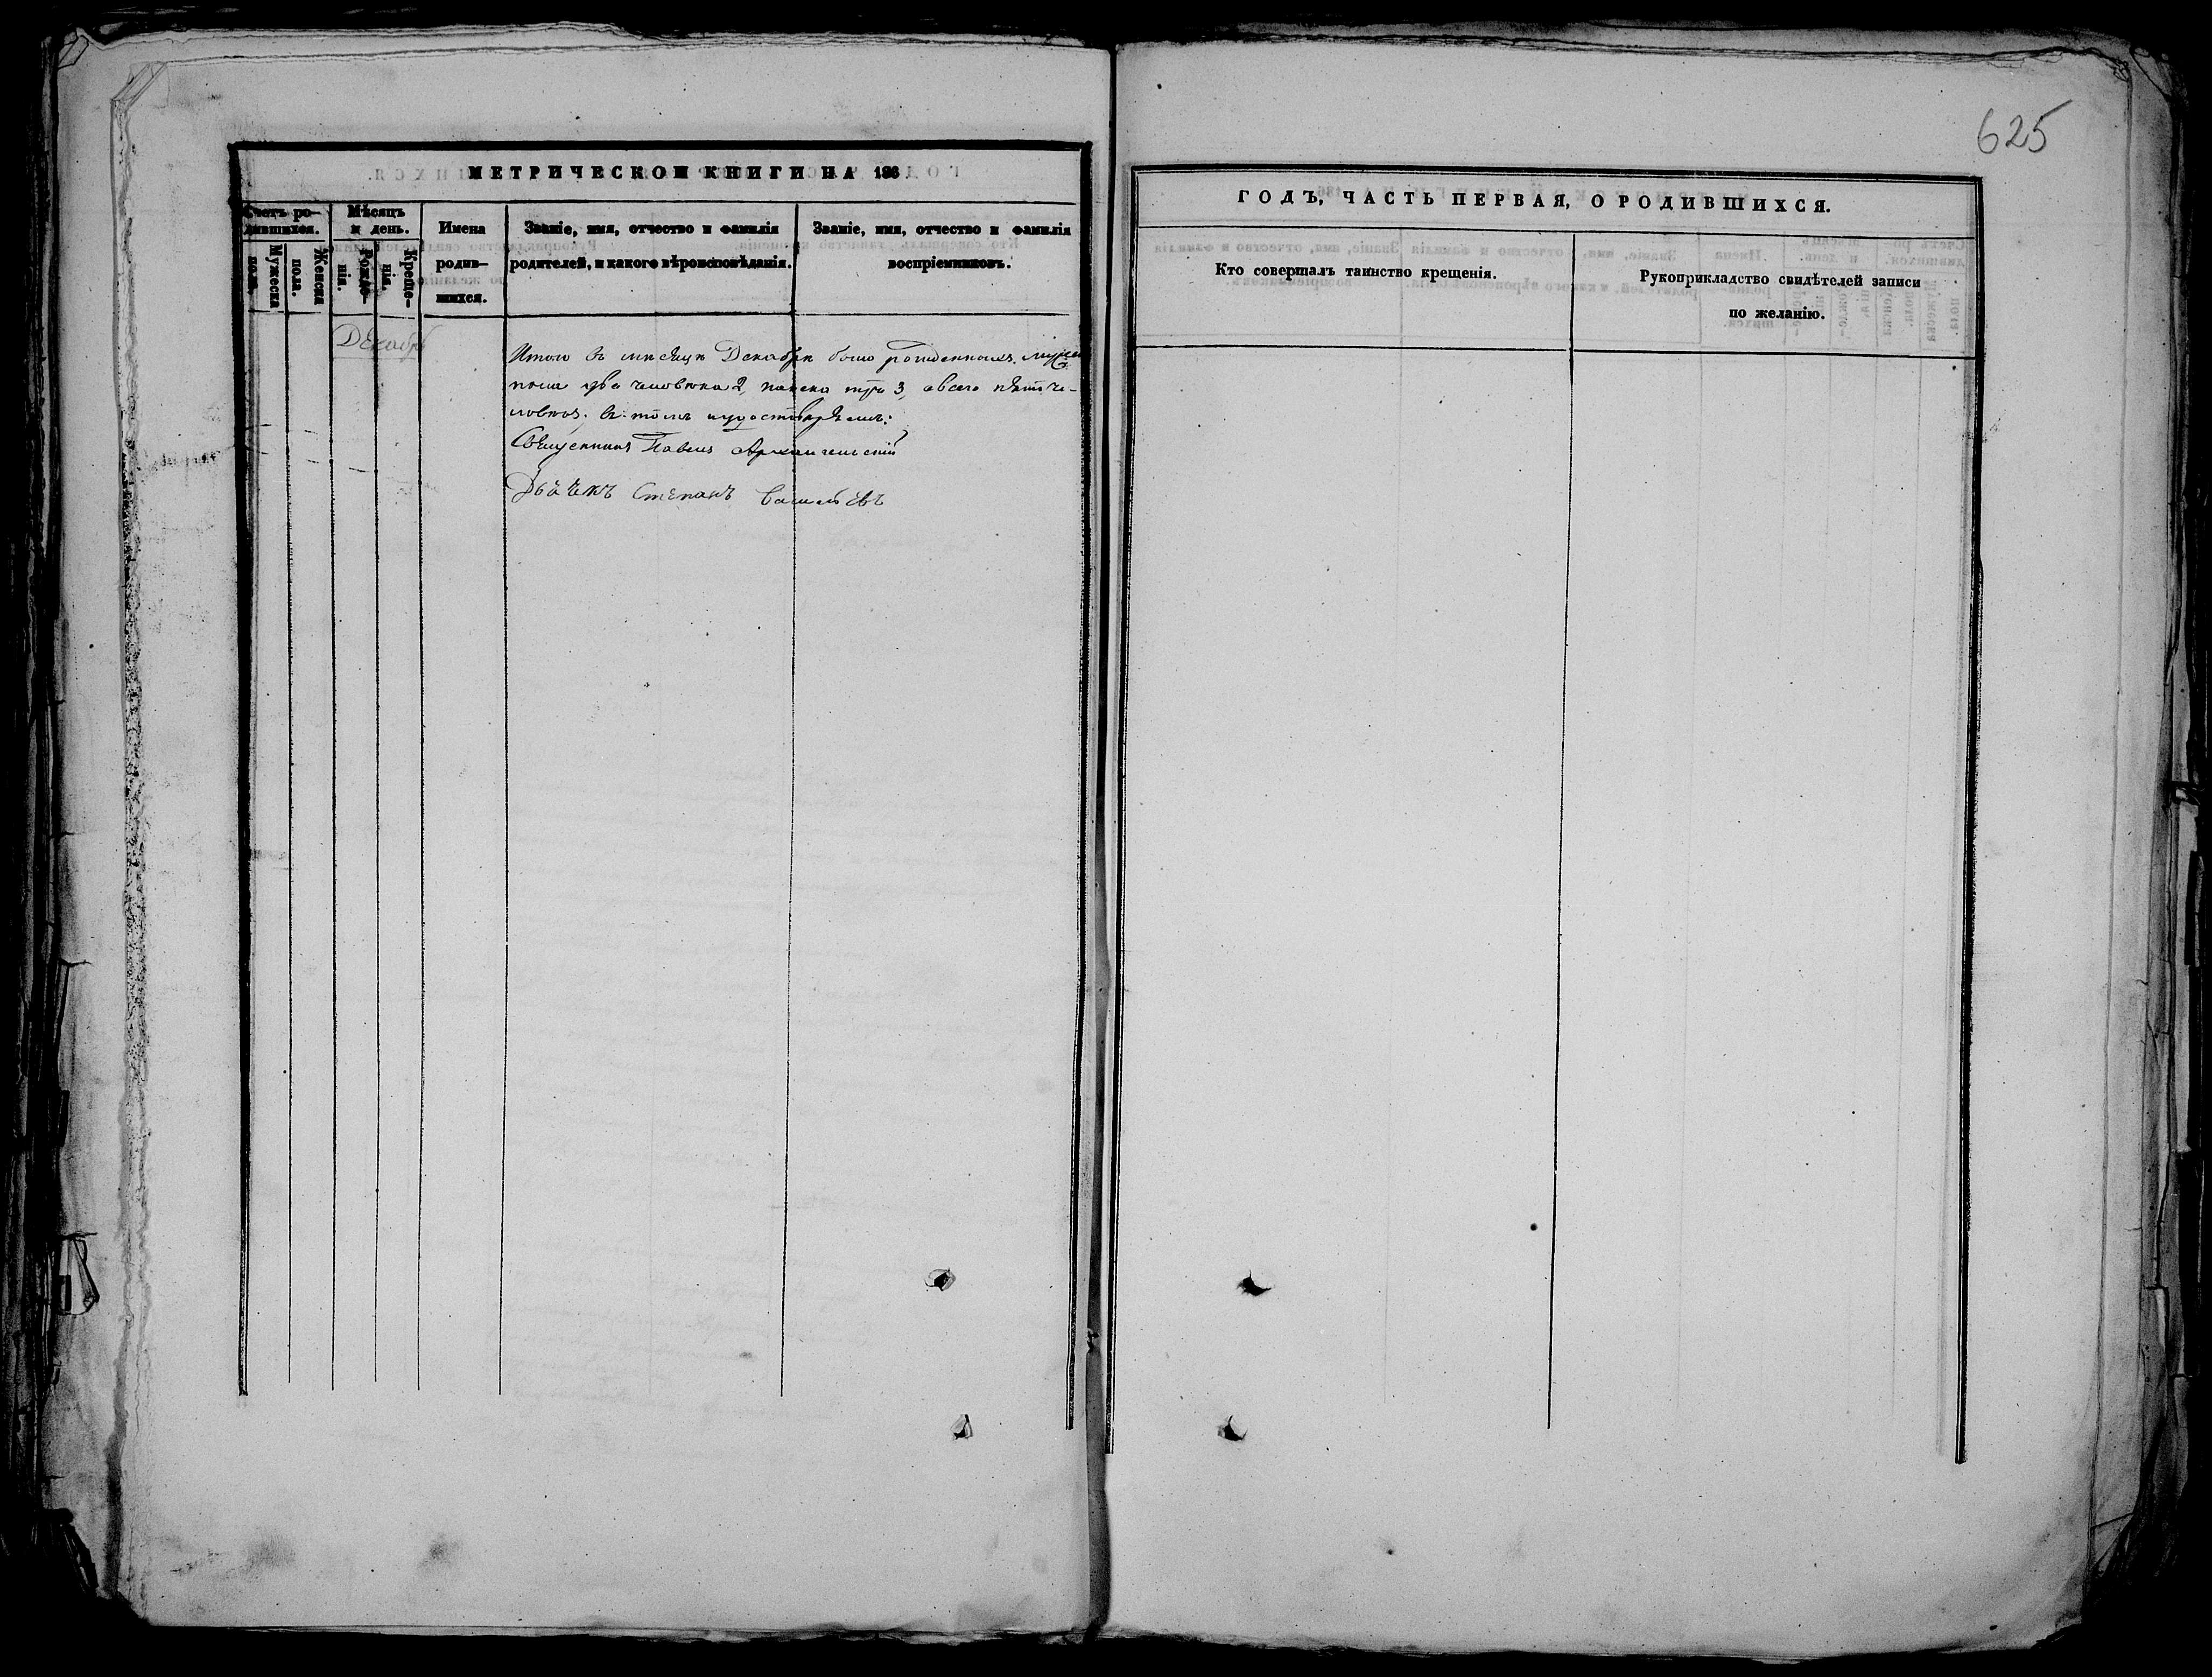 625
МЕТРИЧЕСКОЙ КНИГИ НА 186
ГОДЪ, ЧАСТЬ ПЕРВАЯ, О РОДИВШИХСЯ.
Счетъ ро-
дившихся.
Мужеска
пола.
Женска
пола.
Мѣсяцъ
и день.
Рожде-
нія.
Креще-
нія.
Имена
родив-
шихся.
Званіе, имя, отчество и фамилія
родителей, и какого вѣроисповѣданія.
Званіе, имя, отчество и фамилія
воспріемниковъ.
Кто совершалъ таинство крещенія.
Рукоприкладство свидѣтелей записи
по желанію.
Декабрь
Итого въ мѣсяцѣ Декабрѣ было рожденныхъ мужеска
пола два человѣка 2, женска три 3, а всего пять че-
ловѣкъ; въ томъ удостовѣряемъ:
Священникъ Павелъ Архангельскій
Дьячекъ Степанъ Васильевъ